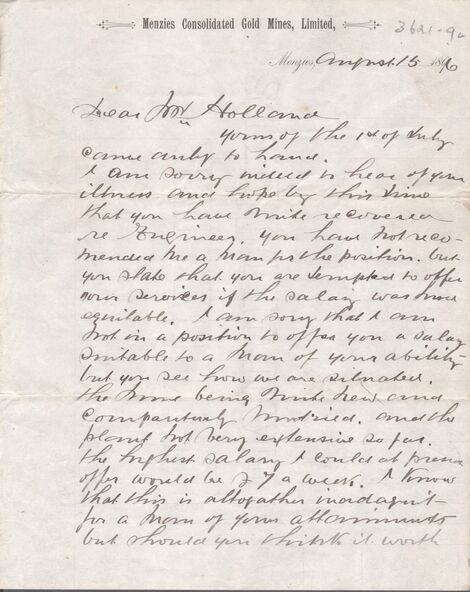 Menzies Consolidated Gold Mines, Limited,
3621-9
Menzies, August 15 1896
Dear Mr Holland
yours of the 1st of July
came duly to hand.
I am sorry indeed to hear of your
illness and hope by this time
that you have quite recovered
re Engineer. you have not reco-
mended me a man for the position. but
you state that you are tempted to offer
your services if the salary was more
equitable. I am sorry that I am
not in a position to offer you a salary
suitable to a man of your ability
but you see how we are situated.
the mine being quite new and
comparitively untried. and the
plant not very extensive so far.
the highest salary I could at present
offer would be £7 a week. I know
that this is altogather inadaquit
for a man of your attainments
but should you think it worth